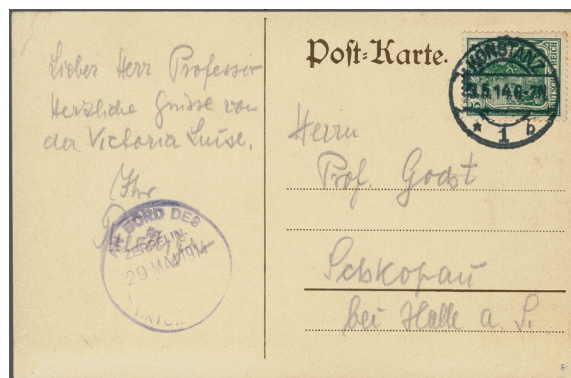 Lieber Herr Professor
Herzliche Grüsse von
der Victoria Luise.
Ihr
AN BORD DES
ZEPPELIN-
29 MAI 1914
Post-Karte.
KONSTANZ
.5.14.6-7N
* 1 b
DEUTSCHES REICH
Herrn
Prof. Godst
Schkopau
bei Halle a. S.